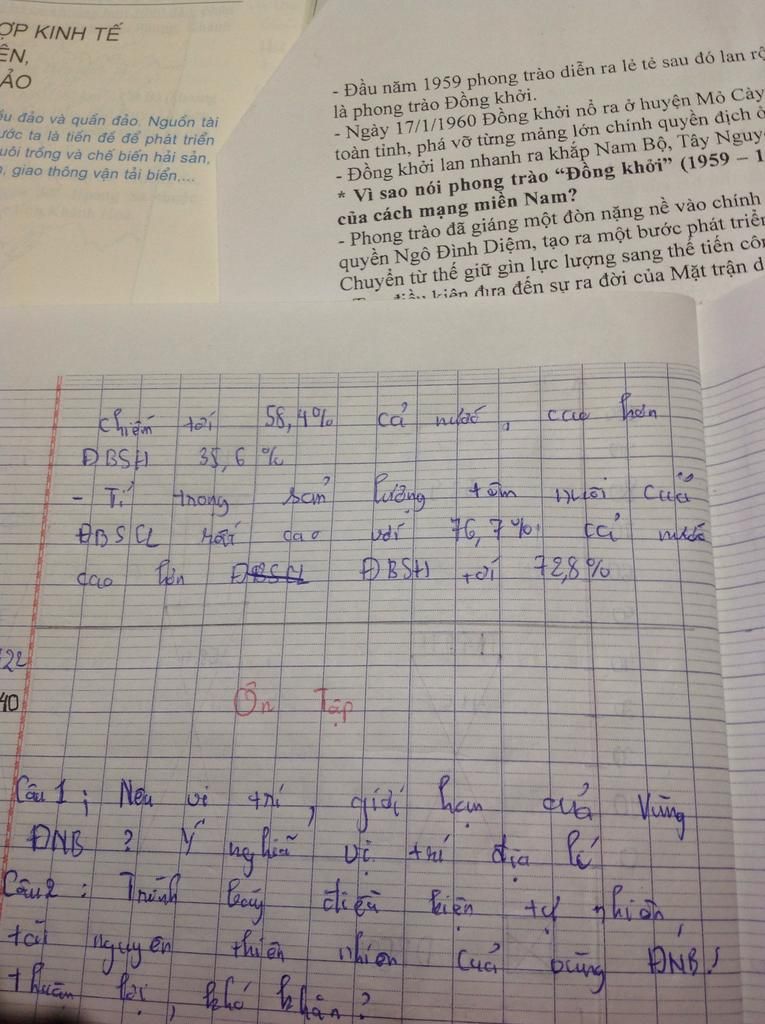 ỢP KINH TẾ
ÊN,
ẢO
ều đảo và quần đảo. Nguồn tài
ước ta là tiền đề để phát triển
uôi trồng và chế biến hải sản,
, giao thông vận tải biển,...
- Đầu năm 1959 phong trào diễn ra lẻ tẻ sau đó lan rộ
là phong trào Đồng khởi.
- Ngày 17/1/1960 Đồng khởi nổ ra ở huyện Mỏ Cày
toàn tỉnh, phá vỡ từng mảng lớn chính quyền địch ở
- Đồng khởi lan nhanh ra khắp Nam Bộ, Tây Nguy
* Vì sao nói phong trào “Đồng khởi” (1959 – 1
của cách mạng miền Nam?
- Phong trào đã giáng một đòn nặng nề vào chính
quyền Ngô Đình Diệm, tạo ra một bước phát triển
Chuyển từ thế giữ gìn lực lượng sang thế tiến côn
điều kiện đưa đến sự ra đời của Mặt trận d
chiếm tới 58,4% cả nước, cao hơn
ĐBSH 35,6 %
- Tỉ trọng sản lượng tôm nuôi của
ĐBSCL rất cao với 76,7% cả nước
cao hơn ĐBSCL ĐBSH tới 72,8%
22
40
Ôn Tập
Câu 1: Nêu vị trí, giới hạn của Vùng
ĐNB? Ý nghĩa vị trí địa lí
Câu 2: Trình bày điều kiện tự nhiên,
tài nguyên thiên nhiên của vùng ĐNB!
thuận lợi, khó khăn?